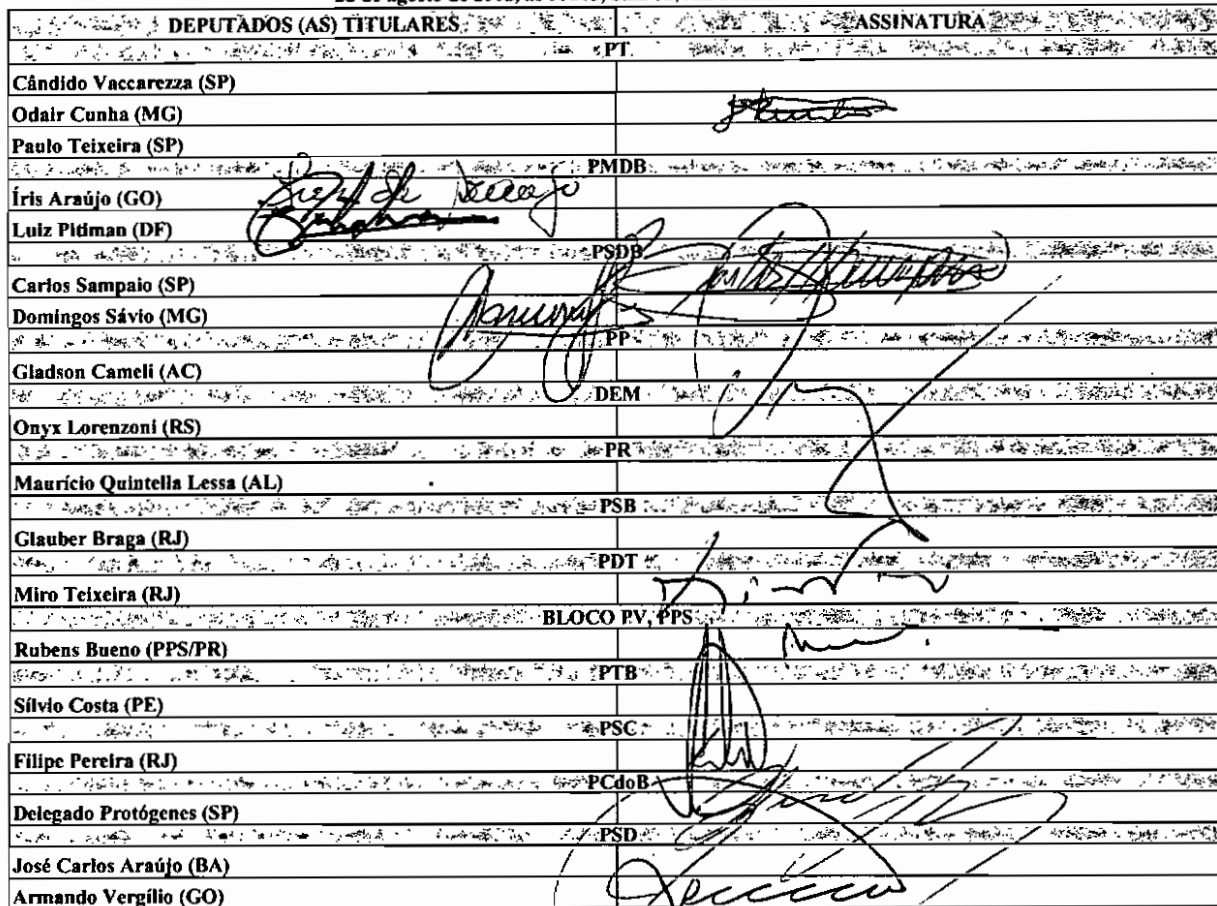 DEPUTADOS (AS) TITULARES ASSINATURA
PT
Cândido Vaccarezza (SP)
Odair Cunha (MG)
Paulo Teixeira (SP)
PMDB
Íris Araújo (GO)
Luiz Pitiman (DF)
PSDB
Carlos Sampaio (SP)
Domingos Sávio (MG)
PP
Gladson Cameli (AC)
DEM
Onyx Lorenzoni (RS)
PR
Maurício Quintella Lessa (AL)
PSB
Glauber Braga (RJ)
PDT
Miro Teixeira (RJ)
BLOCO PV, PPS
Rubens Bueno (PPS/PR)
PTB
Sílvio Costa (PE)
PSC
Filipe Pereira (RJ)
PCdoB
Delegado Protógenes (SP)
PSD
José Carlos Araújo (BA)
Armando Vergílio (GO)